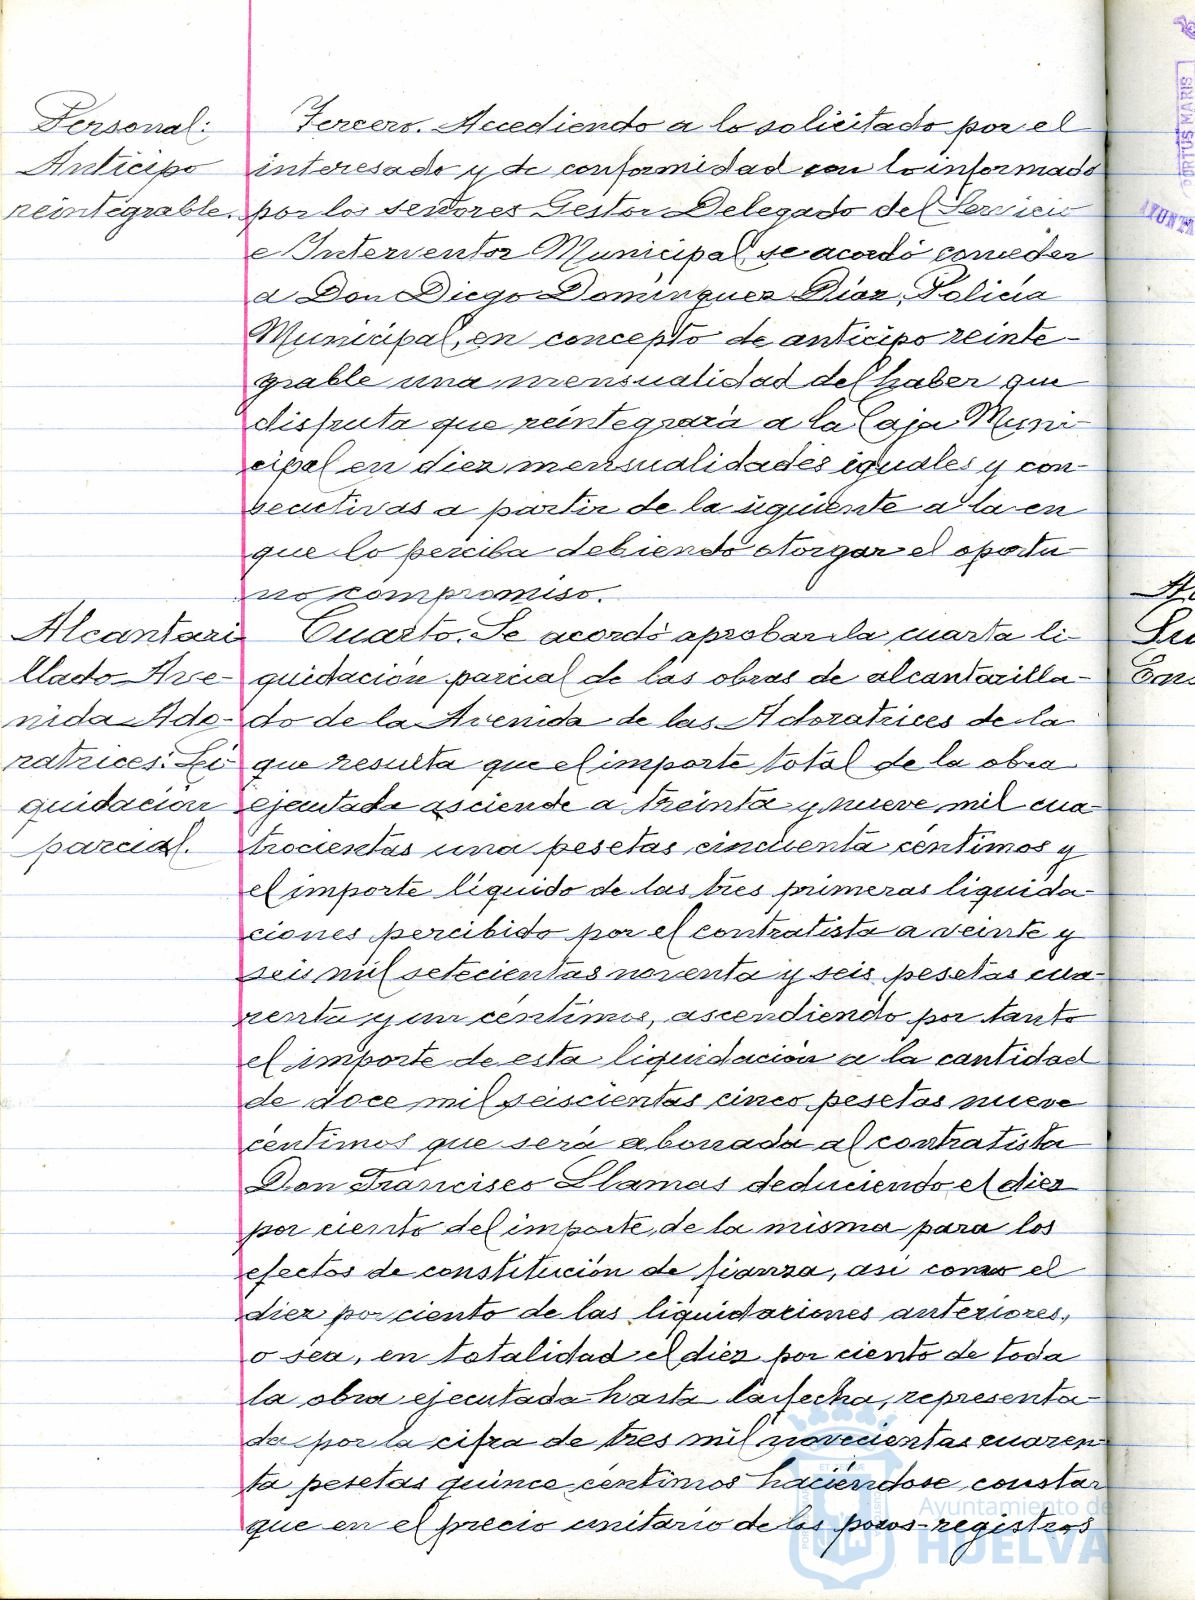 Personal:
Anticipo
reintegrable.
Tercero. Accediendo a lo solicitado por el
interesado y de conformidad con lo informado
por los señores Gestor Delegado del Servicio
e Interventor Municipal, se acordó conceder
a Don Diego Domínguez Díaz, Policía
Municipal, en concepto de anticipo reinte-
grable una mensualidad del haber que
disfruta que reintegrará a la Caja Muni-
cipal en diez mensualidades iguales y con-
secutivas a partir de la siguiente a la en
que lo perciba debiendo otorgar el oportu-
no compromiso.
Alcantari
llado Ave-
nida Ado-
ratrices: Li-
quidación
parcial.
Cuarto. Se acordó aprobar la cuarta li-
quidación parcial de las obras de alcantarilla-
do de la Avenida de las Adoratrices de la
que resulta que el importe total de la obra
ejecutada asciende a treinta y nueve mil cua-
trocientas una pesetas cincuenta céntimos y
el importe líquido de las tres primeras liquida-
ciones percibido por el contratista a veinte y
seis mil setecientas noventa y seis pesetas cua-
renta y un céntimos, ascendiendo por tanto
el importe de esta liquidación a la cantidad
de doce mil seiscientas cinco pesetas nueve
céntimos que será abonada al contratista
Don Francisco Llamas deduciendo el diez
por ciento del importe de la misma para los
efectos de constitución de fianza, así como el
diez por ciento de las liquidaciones anteriores,
o sea, en totalidad el diez por ciento de toda
la obra ejecutada hasta la fecha, representa-
da por la cifra de tres mil novecientas cuaren-
ta pesetas quince céntimos haciéndose constar
que en el precio unitario de los pozos-registros
Ayuntamiento de
HUELVA
PORTUS MARIS